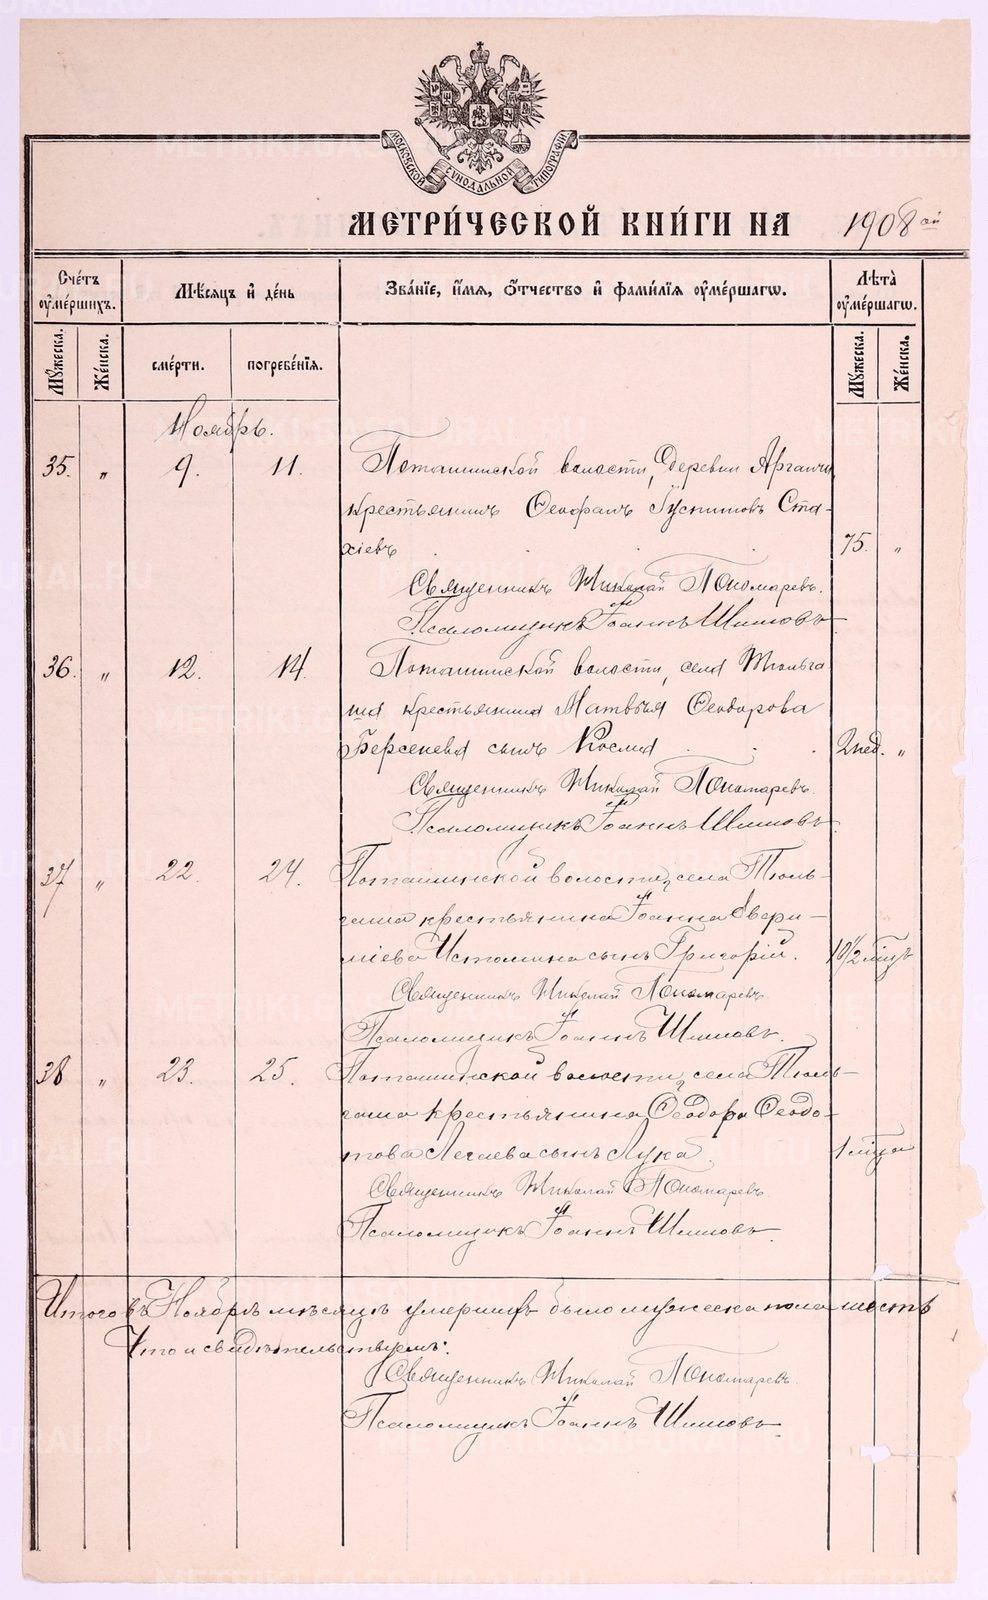 МОСКОВСКОЙ СѴНОДАЛЬНОЙ ТИПОГРАФІИ
МЕТРИ́ЧЕСКОЙ КНИ́ГИ НА 1908 ой
Сче́тъ ᲂу҆ме́ршихъ.
Мѣ́сяцъ и҆ де́нь
Зва́нїе, и҆́мя, ѻ҆́тчество и҆ фами́лїя ᲂу҆ме́ршагѡ.
Лѣта̀ ᲂу҆ме́ршагѡ.
Мꙋ́жеска.
Же́нска.
сме́рти.
погребе́нїя.
Мꙋ́жеска.
Же́нска.
Ноябрь.
35. „ 9. 11. Поташинской волости, деревни Арганчи
крестьянинъ Ѳеофанъ Ста-
хіевъ 75. „
Священникъ Николай Пономаревъ.
Псаломщикъ Іоаннъ Шишовъ
36. „ 12. 14. Поташинской волости, села Тюльга
ша крестьянина Матвѣя Ѳеодорова
Берсенева сынъ Косма 2 нед. „
Священникъ Николай Пономаревъ.
Псаломщикъ Іоаннъ Шишовъ
37 „ 22. 24. Поташинской волости, села Тюль-
гаша крестьянина Іоанна Аври-
ліева Истомина сынъ Григорій. 1 1/2 мѣц
Священникъ Николай Пономаревъ.
Псаломщикъ Іоаннъ Шишовъ.
38 „ 23. 25. Поташинской волости, села Тюль-
гаша крестьянина Ѳеодора Ѳеодо-
това сынъ Лука. 1 мѣца
Священникъ Николай Пономаревъ.
Псаломщикъ Іоаннъ Шишовъ
Итого въ Ноябрѣ мѣсяцѣ умершихъ было мужеска пола шесть
Что и свидѣтельствуемъ:
Священникъ Николай Пономаревъ.
Псаломщикъ Іоаннъ Шишовъ